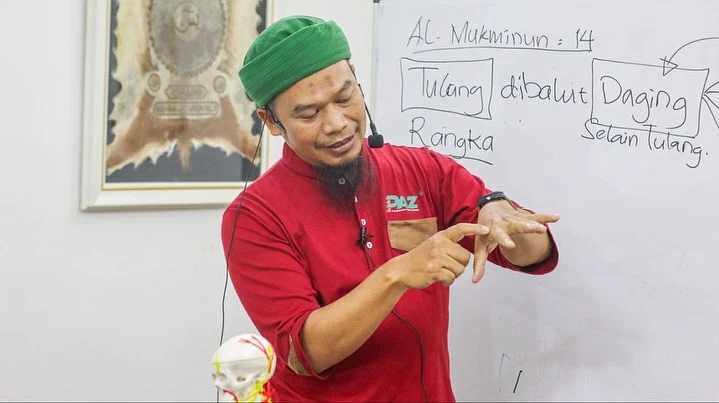 AL-Mukminun : 14
Tulang dibalut Daging
Rangka
Selain Tulang.
DAZ